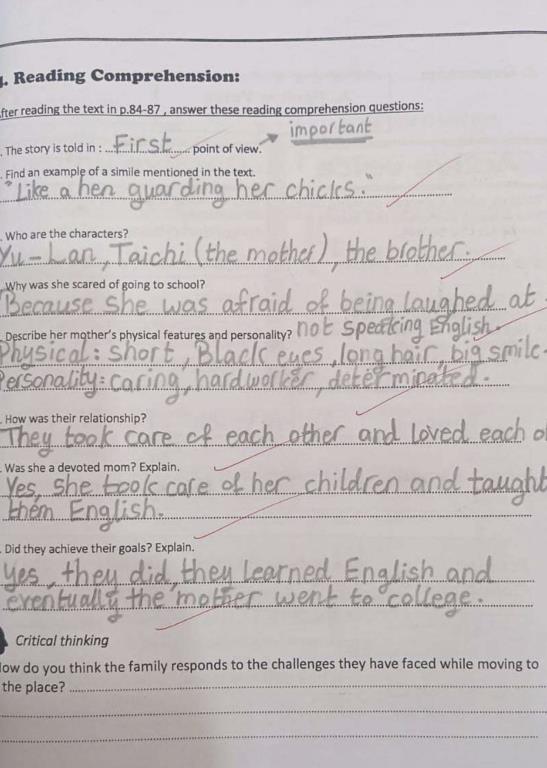 . Reading Comprehension:
fter reading the text in p.84-87 , answer these reading comprehension questions:
important
. The story is told in : ...First...... point of view.
. Find an example of a simile mentioned in the text.
"Like a hen guarding her chicks."
. Who are the characters?
Yu-Lan, Taichi (the mother), the brother.
. Why was she scared of going to school?
Because she was afraid of being laughed at
. Describe her mother's physical features and personality? not speaking English.
Physical: short, Black eyes, long hair, big smile.
Personality: caring, hardworker, determinated.
. How was their relationship?
They took care of each other and loved each o
. Was she a devoted mom? Explain.
Yes, she took care of her children and taught
them English.
. Did they achieve their goals? Explain.
yes, they did, they learned English and
eventually the mother went to college.
Critical thinking
low do you think the family responds to the challenges they have faced while moving to
the place?